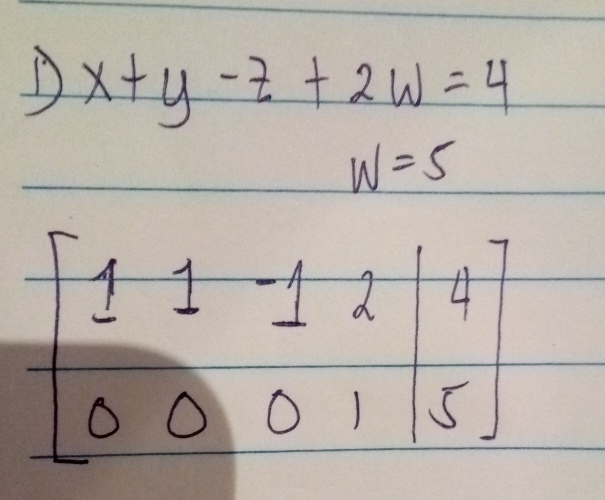 1) x+y-z+2w=4
w=5
1 1 -1 2 | 4
0 0 0 1 | 5